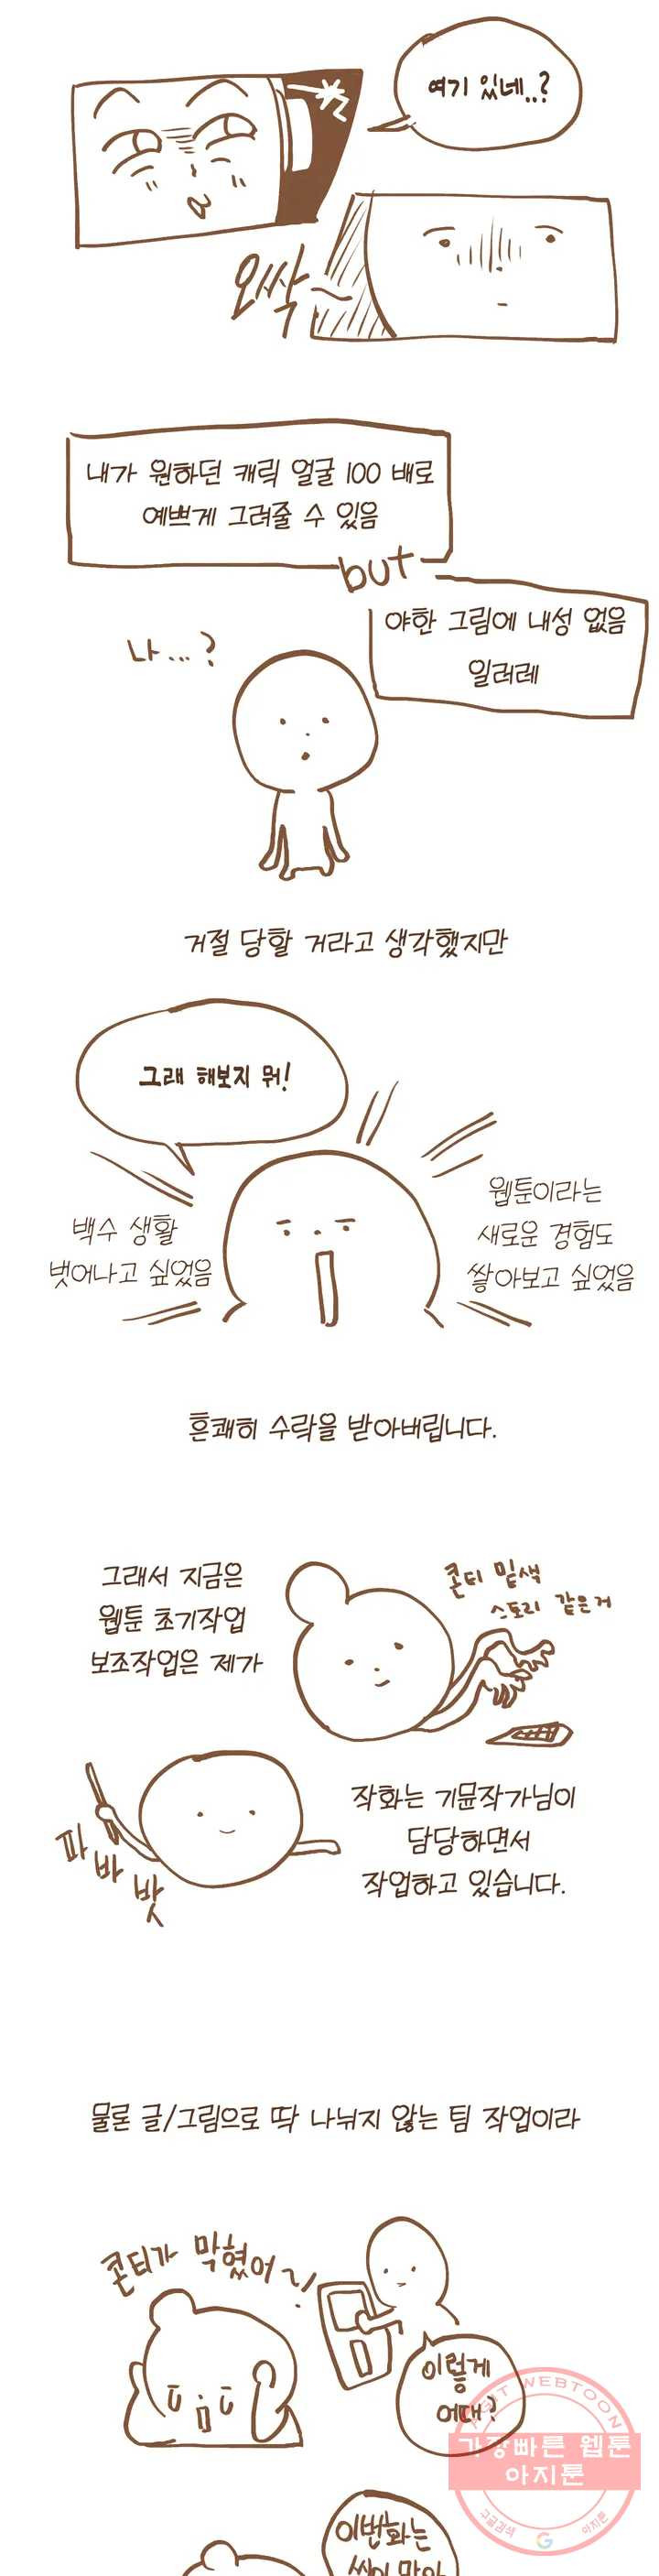 여기 있네..?
오싹
내가 원하던 캐릭 얼굴 100 배로
예쁘게 그려줄 수 있음
but
야한 그림에 내성 없음
일러레
나...?
거절 당할 거라고 생각했지만
그래 해보지 뭐!
백수 생활
벗어나고 싶었음
웹툰이라는
새로운 경험도
쌓아보고 싶었음
흔쾌히 수락을 받아버립니다.
그래서 지금은
웹툰 초기작업
보조작업은 제가
콘티 밑색
스토리 같은거
파
바
밧
작화는 기뮨작가님이
담당하면서
작업하고 있습니다.
물론 글/그림으로 딱 나뉘지 않는 팀 작업이라
콘티가 막혔어~!
이렇게
어때?
WEBTOON
가장빠른 웹툰
아지툰
구글검색
G
아지툰
이번화는